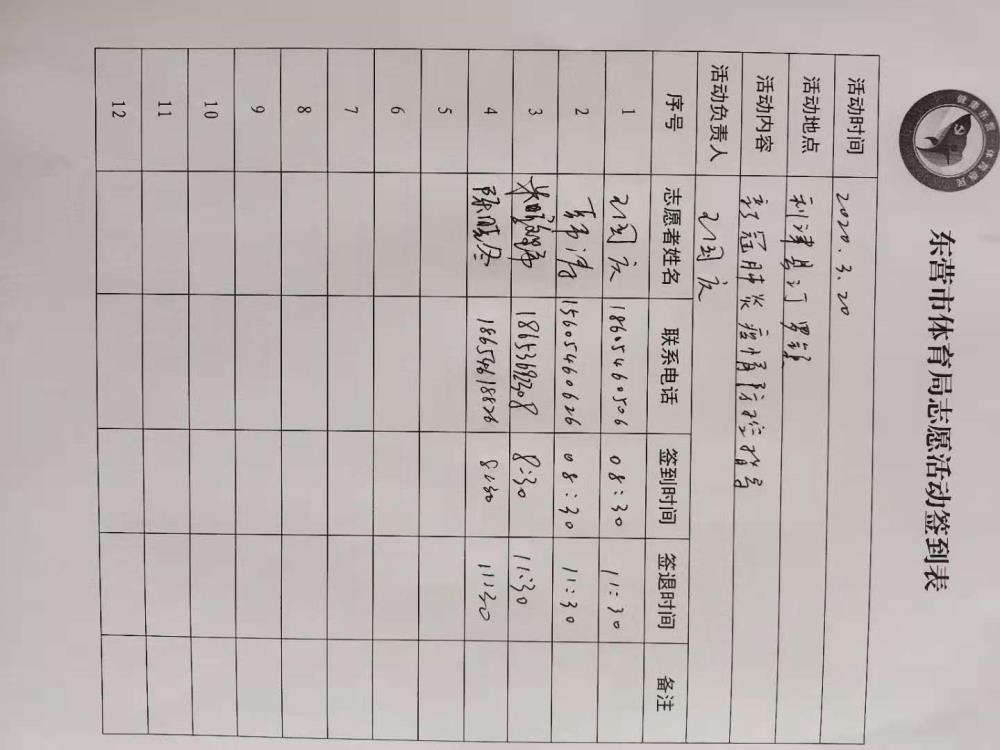 东营市体育局志愿活动签到表
活动时间 2020.3.20
活动地点 利津县汀罗镇
活动内容 新冠肺炎疫情防控督导
活动负责人 国庆
序号 志愿者姓名 联系电话 签到时间 签退时间 备注
1 国庆 18605460506 08:30 11:30
2 15605460626 08:30 11:30
3 18653692208 8:30 11:30
4 陈晓冬 18654618826 8:30 11:30
5
6
7
8
9
10
11
12